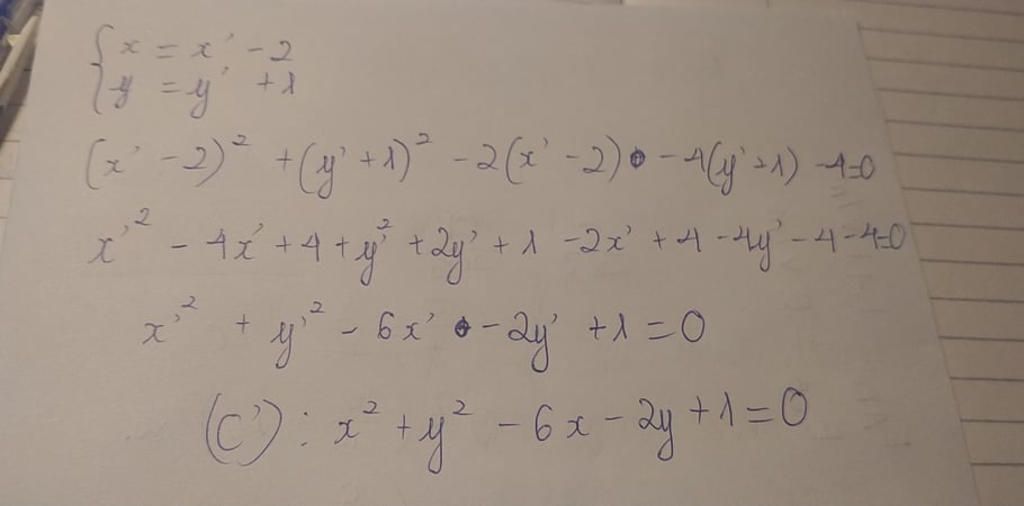 { x = x' - 2
{ y = y' + 1
(x' - 2)² + (y' + 1)² - 2(x' - 2) - 4(y' + 1) - 4 = 0
x'² - 4x' + 4 + y'² + 2y' + 1 - 2x' + 4 - 4y' - 4 - 4 = 0
x'² + y'² - 6x' - 2y' + 1 = 0
(C'): x² + y² - 6x - 2y + 1 = 0